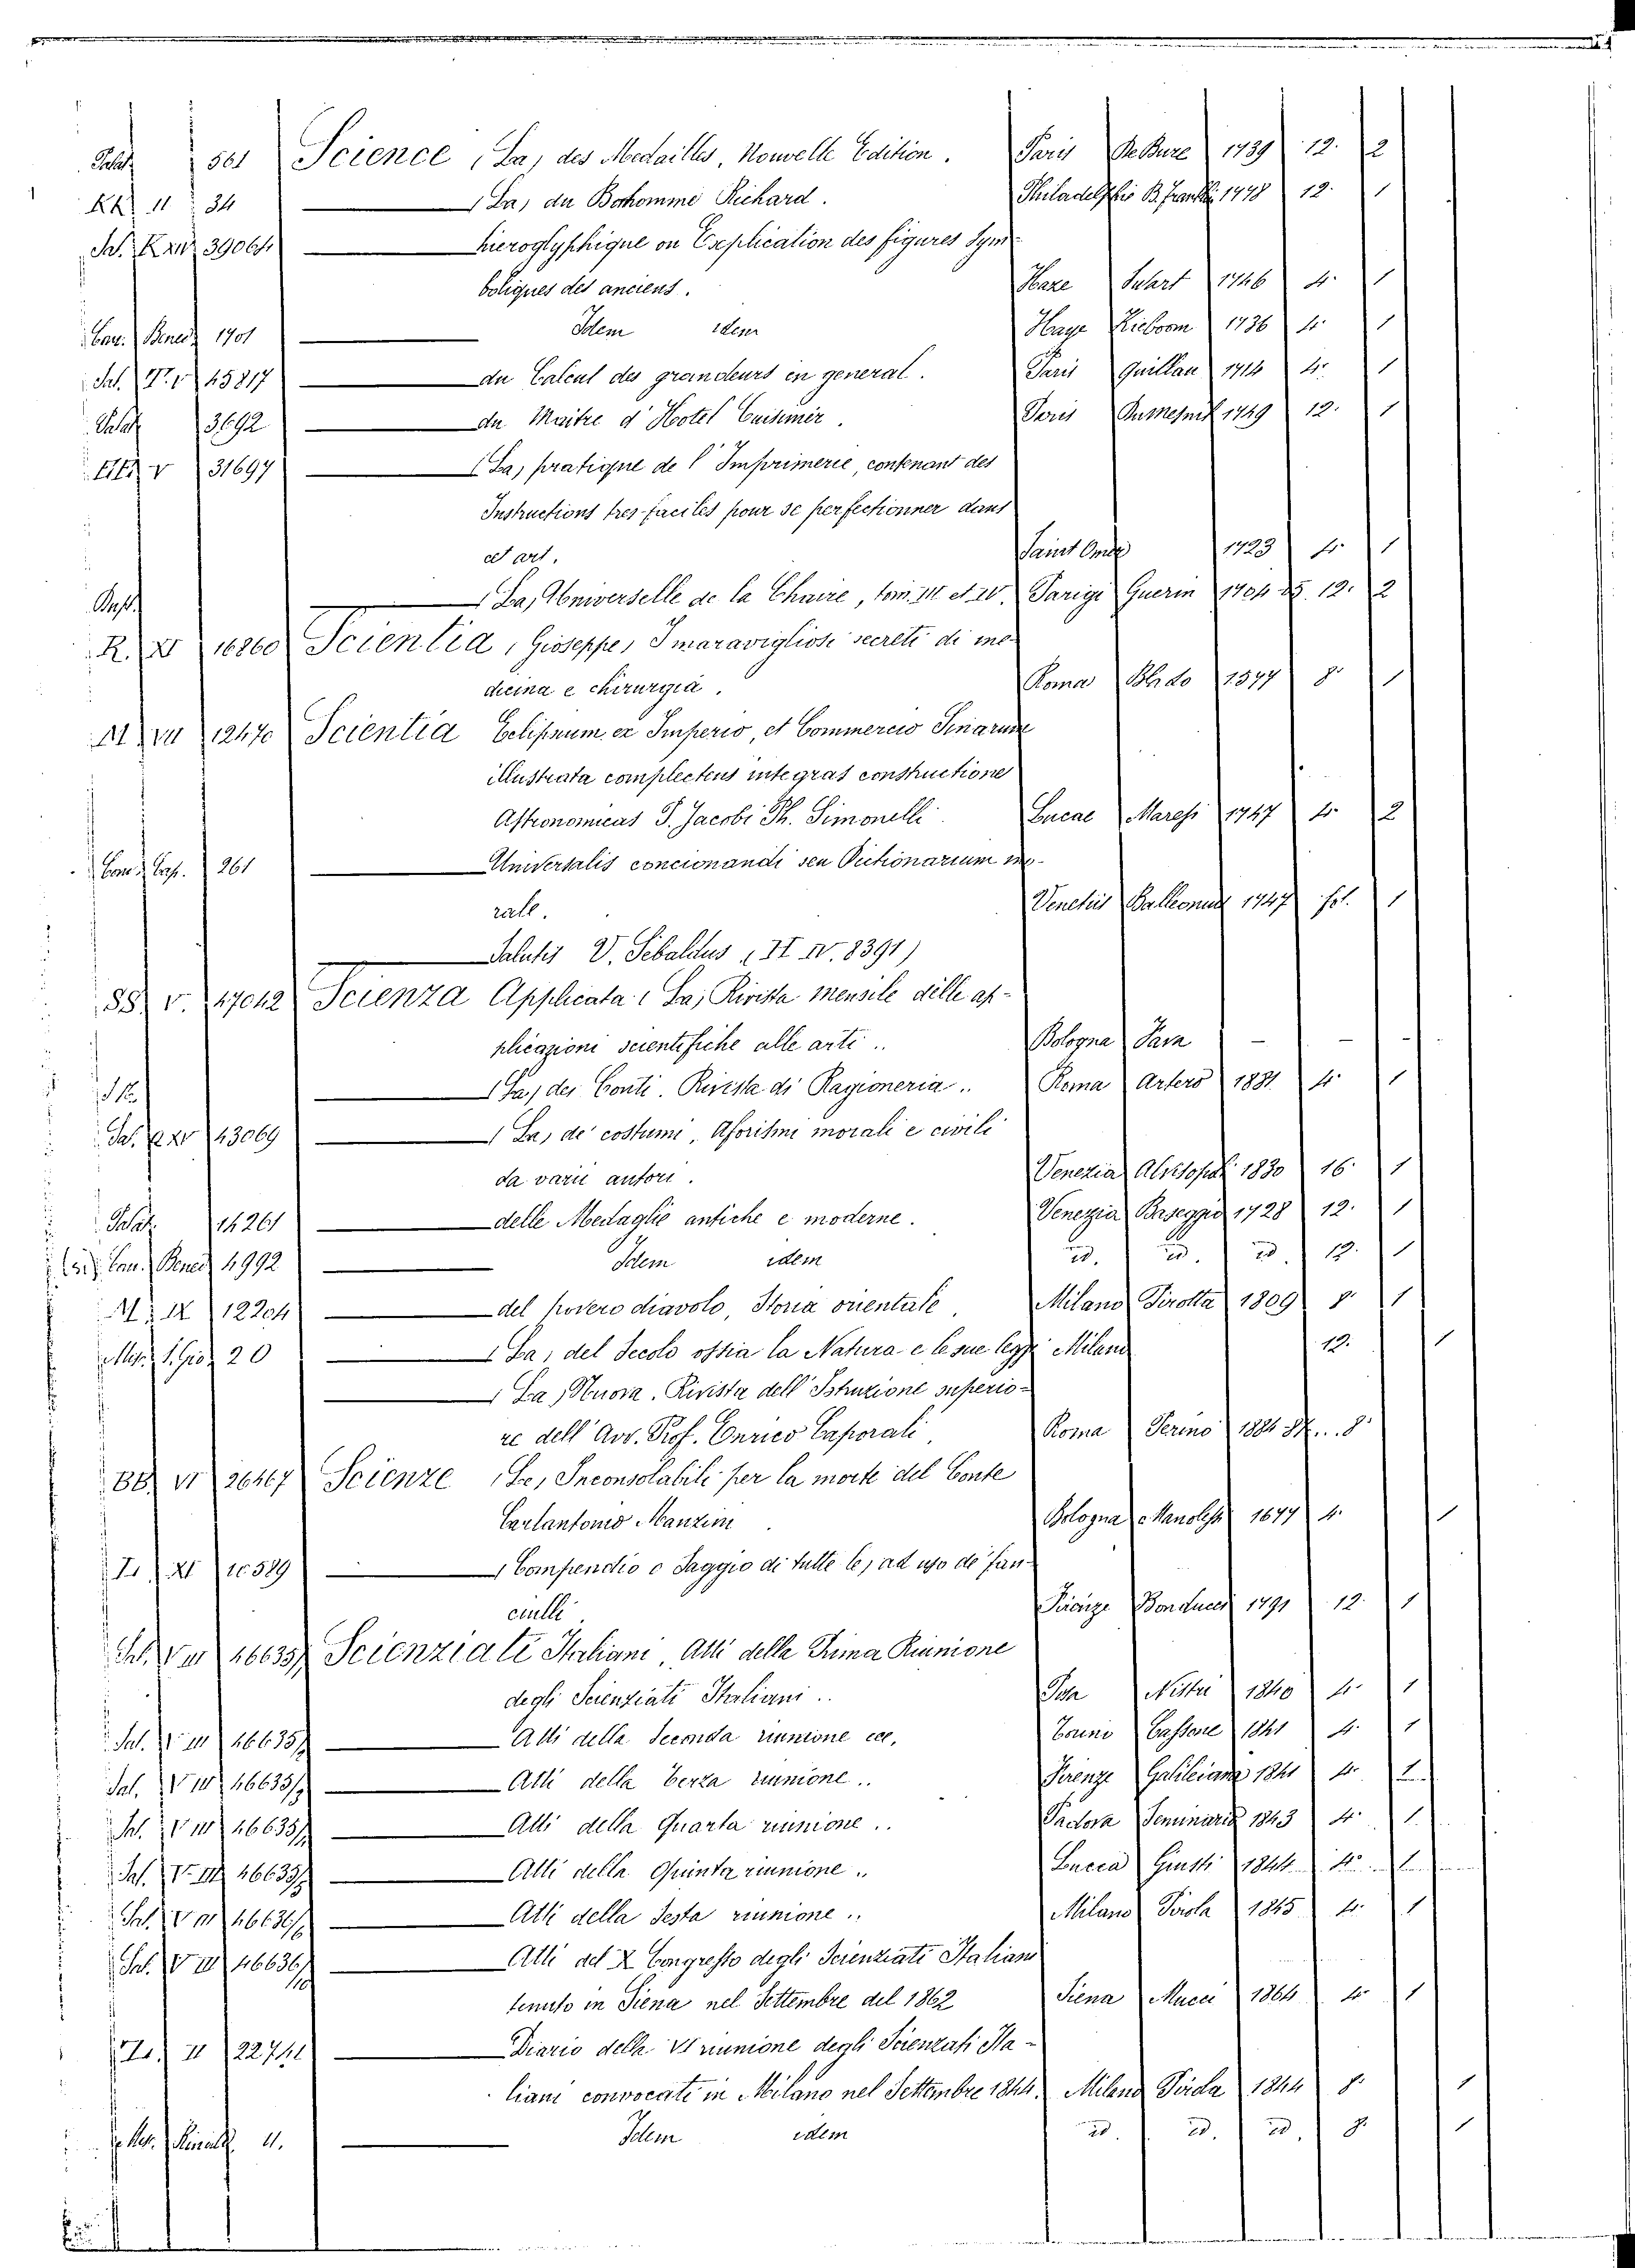 561 Science (La) des Medailles, Nouvelle Edition. Paris De Bure 1739 12. 2
KK 11 34 (La) du Bohomme Richard. Philadelphie B. Franklin 1778 12. 1
39064 hieroglyphique ou Explication des figures Sym-
boliques des anciens. Haxe 1746 4. 1
Cav. Bened. 1701 Idem idem Haye Kieboom 1736 4. 1
Sal. V. 1 45817 du Calcul des grandeurs en general. Paris Quillau 1714 4. 1
3692 du Maitre d'Hotel Cuisinier. Paris 1749 12. 1
V 31697 (La) pratique de l'Imprimerie, contenant des
Instructions tres-faciles pour se perfectionner dans
cet art. Saint Omer 1723 4. 1
(La) Universelle de la Chaire, tom. III et IV. Parigi Guerin 1704 12. 2
R. XI 16860 Scientia (Gioseppe) I maravigliosi secreti di me-
dicina e chirurgia. Roma Blado 1577 8. 1
M VII 12470 Scientia Eclipsium ex Imperio, et Commercio Sinarum
illustrata complectens integras constructiones
Astronomicas P. Jacobi Ph. Simonelli Lucae Maresi 1747 4. 2
Com. Cap. 261 Universalis concionandi seu Dictionarium mo-
rale. Venetiis Balleonius 1747 fol. 1
Salutis V. Sebaldus (II IV. 8391)
SS V. 47012 Scienza Applicata (La) Rivista mensile delle ap-
plicazioni scientifiche alle arti.. Bologna Para - - -
(La) dei Conti. Rivista di Ragioneria.. Roma Artero 1881. 4. 1
43069 (La) de' costumi, Aforismi morali e civili
da varii autori. Venezia Alvisopoli 1830 16. 1
14261 delle Medaglie antiche e moderne. Venezia Baseggio 1728 12. 1
Cav. Bened. 4992 Idem idem id. id. id. 12. 1
M IX 12204 del povero diavolo, Storia orientale. Milano Pirotta 1809 8. 1
S. Gio. 20 (La) del Secolo ossia la Natura e le sue leggi Milano 12. 1
(La) Nuova. Rivista dell'Istruzione superio-
re dell'Avv. Prof. Enrico Caporali. Roma Perino 1884 8.
BB VI 26467 Scienze (Le) Inconsolabili per la morte del Conte
Carlantonio Manzini Bologna Manolessi 1677 4. 1
XI 10589 (Compendio o Saggio di tutte le) ad uso de' fan-
ciulli Firenze Bonducci 1791 12. 1
Sal. V III 46635/1 Scienziati Italiani, Atti della Prima Riunione
degli Scienziati Italiani.. Pisa Nistri 1840 4. 1
Sal. V III 46635/ Atti della Seconda riunione ecc. Torino Cassone 1841 4. 1
Sal. V III 46635/ Atti della terza riunione.. Firenze Galileiana 1841 4. 1
Sal. V III 46635/ Atti della Quarta riunione.. Padova Seminario 1843 4. 1
Sal. V III 46635/ Atti della Quinta riunione.. Lucca Giusti 1844 4. 1
Sal. V III 46636/ Atti della Sesta riunione.. Milano Pirola 1845 4. 1
Sal. V III 46636/10 Atti del X Congresso degli Scienziati Italiani
tenuto in Siena nel Settembre del 1862 Siena Mucci 1864 4. 1
II 22741 Diario della VI riunione degli Scienziati Ita-
liani convocati in Milano nel Settembre 1844. Milano Pirola 1844 8. 1
11. Idem idem id. id. id. 8. 1